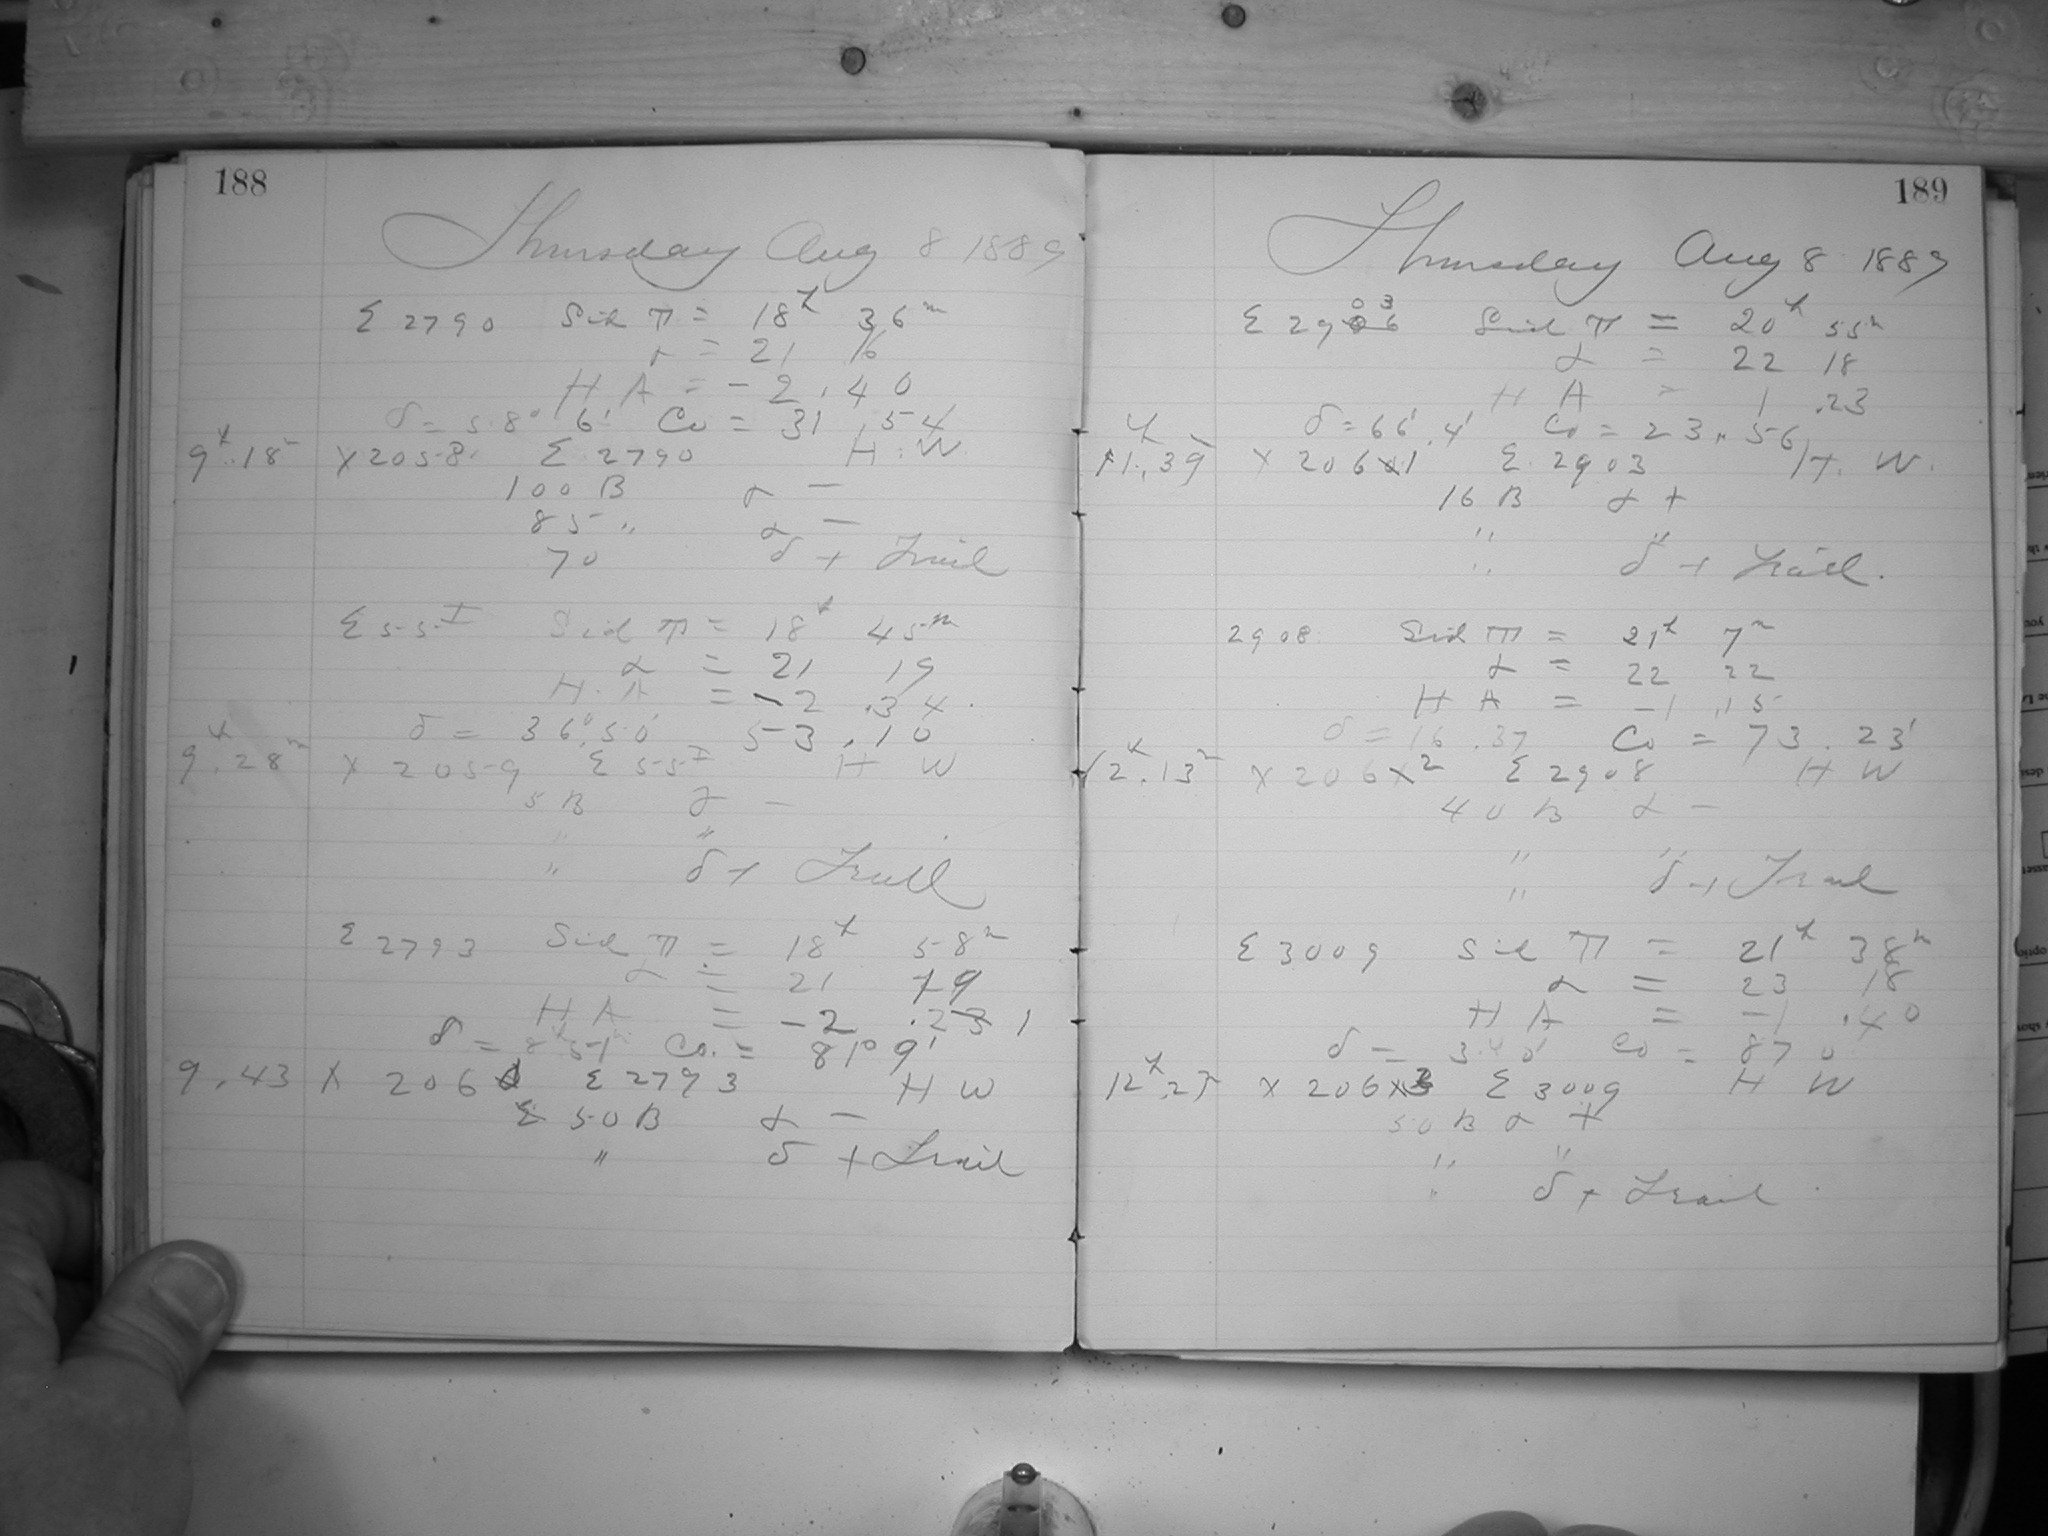 188
Thursday Aug 8 1889
Σ 2790 Sid T = 18h 36m
α = 21 16
H A = - 2 . 40
δ = 58° 6' Co = 31 . 54
9h.18m X 2058. Σ 2790 H. W
100 B α -
85 " α -
70 δ + Trail
Σ 55 I Sid T = 18h 45m
α = 21 19
H. A = - 2 . 34.
δ = 36° 50' 53 . 10
9h.28m X 2059 Σ 55 I H W
5 B α -
" "
" δ + Trail
Σ 2793 Sid T = 18h 58m
α = 21 19
H A = - 2 . 2 1
δ = 8° 51' Co. = 81° 9'
9.43 X 2060 Σ 2793 H W
50 B α -
" δ + Trail
189
Thursday Aug 8 1889
Σ 2903 Sid T = 20h 55m
α = 22 18
H A = 1 .23
δ = 66° .4' Co = 23 . 56
11h.39 X 2061 Σ. 2903 H. W.
16 B α +
" "
" δ + Trail.
2908 Sid T = 21h 7m
α = 22 22
H A = -1 .15
δ = 16 .37 Co = 73 . 23'
12h.13m X 2062 Σ 2908 H W
40 B α -
" "
" δ + Trail
Σ 3009 Sid T = 21h 38m
α = 23 18
H A = -1 .40
δ = 3. 0' Co = 87 0
12h.25 X 2063 Σ 3009 H W
50 B α +
" "
" δ + Trail